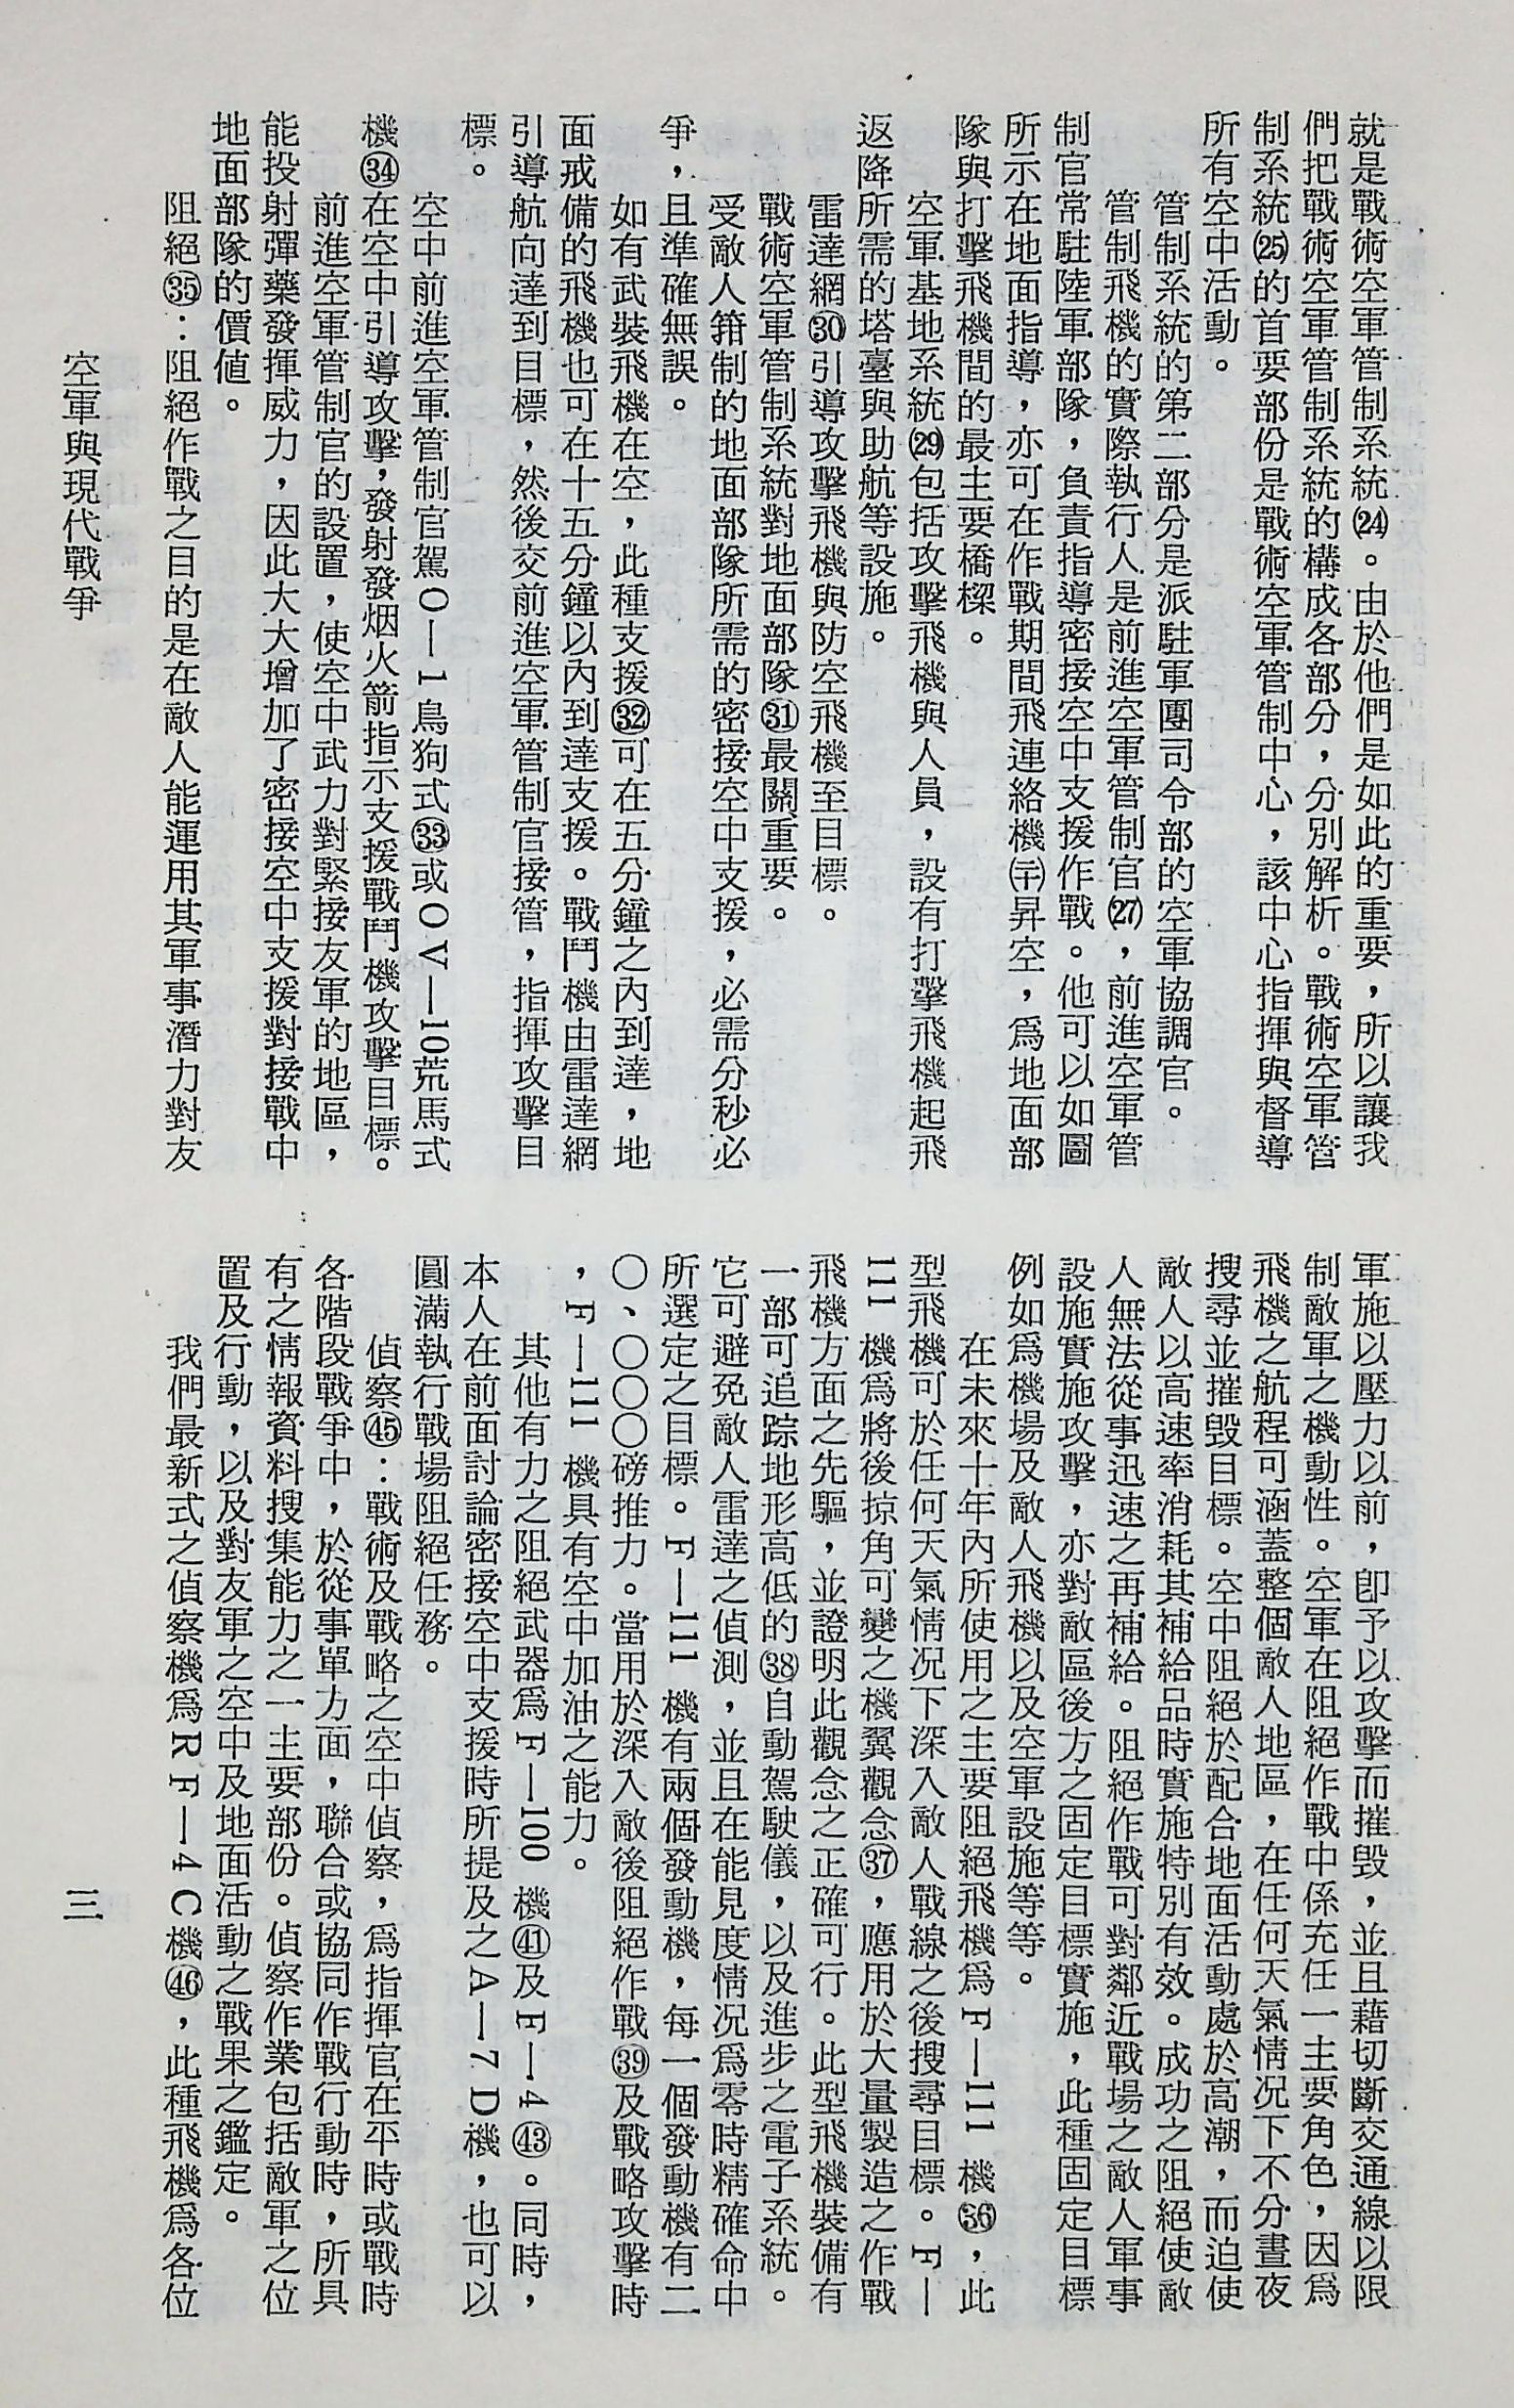 就是戰術空軍管制系統㉔。由於他們是如此的重要，所以讓我
們把戰術空軍管制系統的構成各部分，分別解析。戰術空軍管
制系統㉕的首要部份是戰術空軍管制中心，該中心指揮與督導
所有空中活動。
管制系統的第二部分是派駐軍團司令部的空軍協調官。
管制飛機的實際執行人是前進空軍管制官㉗，前進空軍管
制官常駐陸軍部隊，負責指導密接空中支援作戰。他可以如圖
所示在地面指導，亦可在作戰期間飛連絡機昇空，爲地面部
隊與打擊飛機間的最主要橋樑。
空軍基地系統㉙包括攻擊飛機與人員，設有打擊飛機起飛
返降所需的塔臺與助航等設施。
雷達網㉚引導攻擊飛機與防空飛機至目標。
戰術空軍管制系統對地面部隊㉛最關重要。
受敵人箝制的地面部隊所需的密接空中支援，必需分秒必
爭，且準確無誤。
如有武裝飛機在空，此種支援㉜可在五分鐘之內到達，地
面戒備的飛機也可在十五分鐘以內到達支援。戰鬥機由雷達網
引導航向達到目標，然後交前進空軍管制官接管，指揮攻擊目
標。
空中前進空軍管制官駕O—1鳥狗式㉝或OV—10荒馬式
機㉞在空中引導攻擊，發射發烟火箭指示支援戰鬥機攻擊目標。
前進空軍管制官的設置，使空中武力對緊接友軍的地區，
能投射彈藥發揮威力，因此大大增加了密接空中支援對接戰中
地面部隊的價値。
阻絕㉟：阻絕作戰之目的是在敵人能運用其軍事潛力對友
軍施以壓力以前，卽予以攻擊而摧毀，並且藉切斷交通線以限
制敵軍之機動性。空軍在阻絕作戰中係充任一主要角色，因爲
飛機之航程可涵蓋整個敵人地區，在任何天氣情況下不分晝夜
搜尋並摧毀目標。空中阻絕於配合地面活動處於高潮，而迫使
敵人以高速率消耗其補給品時實施特別有效。成功之阻絕使敵
人無法從事迅速之再補給。阻絕作戰可對鄰近戰場之敵人軍事
設施實施攻擊，亦對敵區後方之固定目標實施，此種固定目標
例如爲機場及敵人飛機以及空軍設施等等。
在未來十年內所使用之主要阻絕飛機爲F—111 機㊱，此
型飛機可於任何天氣情況下深入敵人戰線之後搜尋目標。F—
111 機爲將後掠角可變之機翼觀念㊲，應用於大量製造之作戰
飛機方面之先驅，並證明此觀念之正確可行。此型飛機裝備有
一部可追踪地形高低的㊳自動駕駛儀，以及進步之電子系統。
它可避免敵人雷達之偵測，並且在能見度情況爲零時精確命中
所選定之目標。F—111 機有兩個發動機，每一個發動機有二
〇、〇〇〇磅推力。當用於深入敵後阻絕作戰㊴及戰略攻擊時
，F—111 機具有空中加油之能力。
其他有力之阻絕武器爲F—100 機㊶及F—4㊸。同時，
本人在前面討論密接空中支援時所提及之A—7D機，也可以
圓滿執行戰場阻絕任務。
偵察㊺：戰術及戰略之空中偵察，爲指揮官在平時或戰時
各階段戰爭中，於從事單力方面，聯合或協同作戰行動時，所具
有之情報資料搜集能力之一主要部份。偵察作業包括敵軍之位
置及行動，以及對友軍之空中及地面活動之戰果之鑑定。
我們最新式之偵察機爲RF—4C機㊻，此種飛機爲各位
空軍與現代戰爭
三